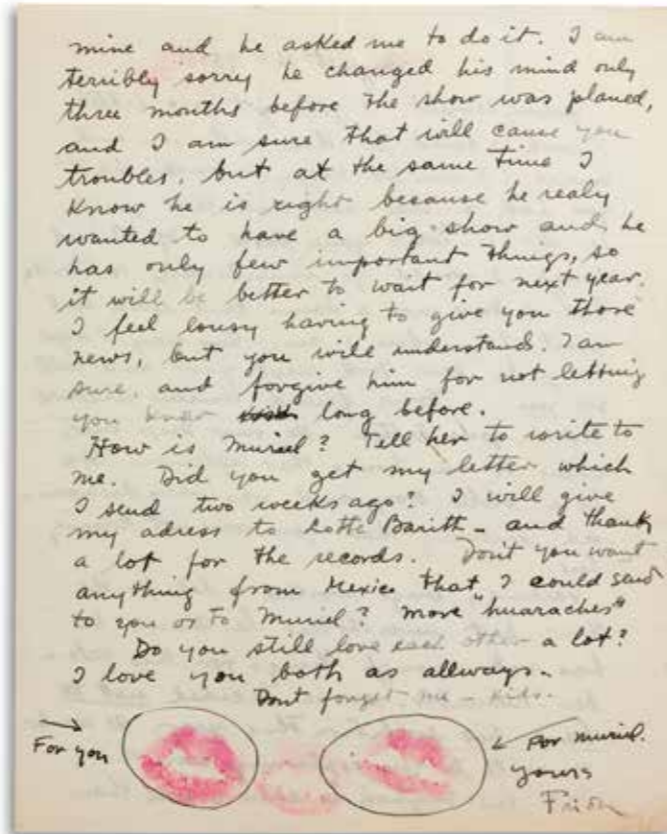 mine and he asked me to do it. I am
terribly sorry he changed his mind only
three months before the show was planed,
and I am sure that will cause you
troubles, but at the same time I
know he is right because he realy
wanted to have a big show and he
has only few important things, so
it will be better to wait for next year.
I feel lousy having to give you those
news, but you will understand. I am
sure, and forgive him for not letting
you know long before.
How is Muriel? Tell her to write to
me. Did you get my letter which
I send two weeks ago? I will give
my adress to Lotte – and thanks
a lot for the records. Don't you want
anything from Mexico that I could send
to you or to Muriel? More "huaraches"
Do you still love each other a lot?
I love you both as allways.
Dont forget me – Kids.
For you
For Muriel.
yours
Frida